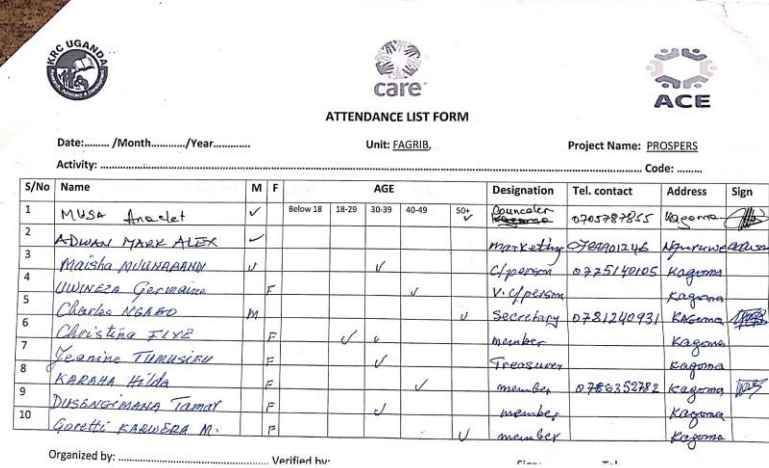 KRC UGANDA
care
ACE
ATTENDANCE LIST FORM
Date:......... /Month............/Year............. Unit: FAGRIB, Project Name: PROSPERS
Activity: ............ Code: .........
S/No Name M F AGE Designation Tel. contact Address Sign
Below 18 18-29 30-39 40-49 50+
1 MUSA Anaclet ✓ ✓ Councelor 0705787855 Kagoma
2 ADWAN MARK ALEX ✓ marketing
3 Maisha ✓ ✓ C/person 0775140105 Kagoma
4 UWINEZA Germaine F ✓ V.C/person Kagoma
5 Charles M ✓ Secretary 0781240931 Kagoma
6 Christina F ✓ ✓ member Kagoma
7 Jeanine TUMUSIFU F ✓ Treasurer Kagoma
8 KARAHA Hilda F ✓ member 0786352782 Kagoma
9 DUSENGIMANA Tamar F ✓ member Kagoma
10 Goretti KARWERA M. F ✓ member Kagoma
Organized by: ............ Verified by: